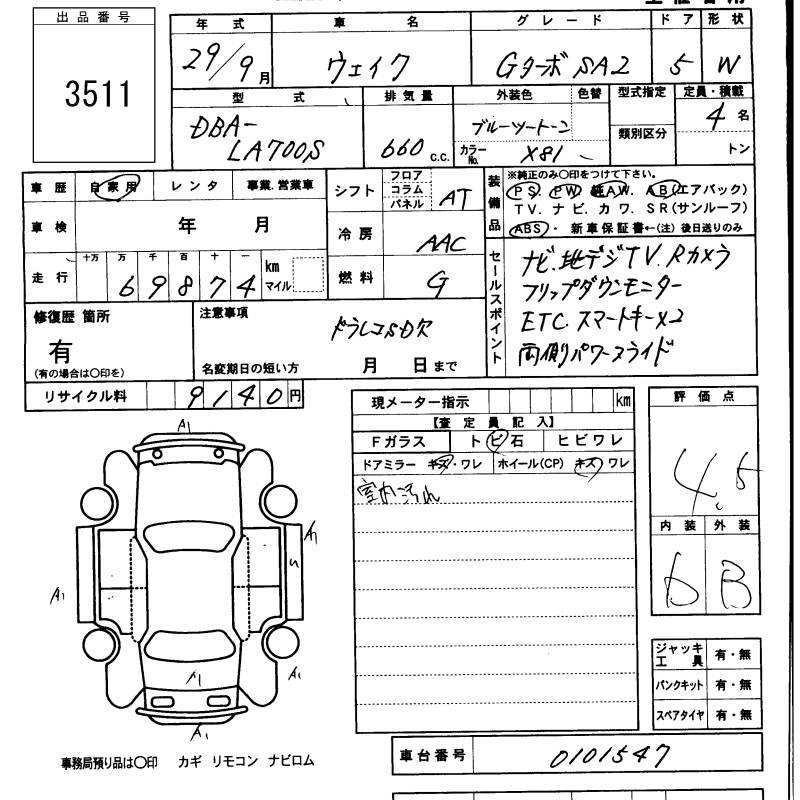 出品番号
3511
年式 車名 グレード ドア 形状
29/9月 ウェイク Gターボ SA2 5 W
型式 排気量 外装色 色替 型式指定 定員・積載
DBA-
LA700S 660 c.c. ブルーツートーン 4名
カラーNo. X81 類別区分 トン
車歴 自家用 レンタ 事業.営業車
車検 年 月
走行 十万 万 千 百 十 一 km マイル
69874
シフト フロア コラム パネル AT
冷房 AAC
燃料 G
装備品
※純正のみ○印をつけて下さい。
PS. PW. 純AW. AB(エアバック)
TV. ナビ. カワ. SR(サンルーフ)
ABS・ 新車保証書←(注) 後日送りのみ
セールスポイント
ナビ.地デジTV.Rカメラ
フリップダウンモニター
ETC.スマートキーx2
両側パワースライド
修復歴 箇所
有
(有の場合は○印を)
注意事項
ドラレコSD欠
名変期日の短い方 月 日まで
リサイクル料 9140円
現メーター指示 km
【査定員記入】
Fガラス トビ石 ヒビワレ
ドアミラー キズ・ワレ ホイール(CP) キズ ワレ
室内汚れ
評価点
4.5
内装 外装
b B
A1
A1
A1
A1
A1
A1
ジャッキ工具 有・無
パンクキット 有・無
スペアタイヤ 有・無
事務局預り品は○印 カギ リモコン ナビロム
車台番号 0101547